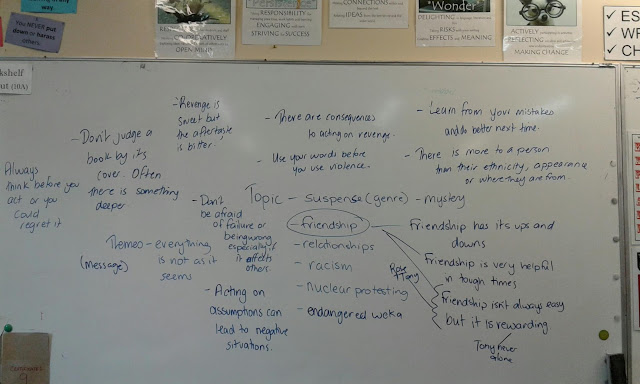 way.
You NEVER put
down or harass
others.
RESPONSIBILITY
ENGAGING
STRIVING for SUCCESS
CONNECTIONS
IDEAS
Wonder
DELIGHTING
Taking RISKS
EFFECTS and MEANING
ACTIVELY
REFLECTING
MAKING CHANGE
✓ ES
✓ WR
✓ CH
kshelf
out (10A)
Always
think before you
act or you
could
regret it
- Don't judge a
book by its
cover. Often
there is something
deeper.
- Revenge is
sweet but
the aftertaste
is bitter.
- There are consequences
to acting on revenge.
- Use your words before
you use violence.
- Learn from your mistakes
and do better next time.
- There is more to a person
than their ethnicity, appearance
or where they are from.
- Don't
be afraid
of failure or
being wrong
especially if
it affects
others.
Themes - everything
(message) is not as it
seems
- Acting on
assumptions can
lead to negative
situations.
Topic - suspense (genre) - mystery
- friendship
- relationships
- racism
- nuclear protesting
- endangered weka
Friendship has its ups and
downs
Friendship is very helpful
in tough times
Rose
+ Tony
friendship isn't always easy
but it is rewarding
Tony never
alone